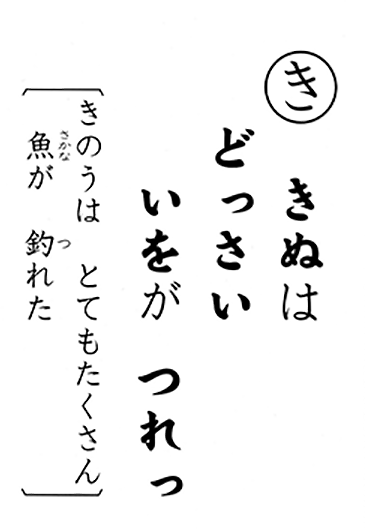 き
きぬは
どっさい
いをが つれっ
きのうは とてもたくさん
魚が 釣れた